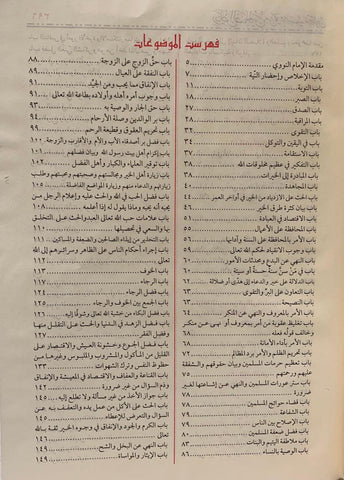 فهرست الموضوعات
مقدمة الإمام النووي ٥
باب الإخلاص وإحضار النية ٧
باب التوبة ١١
باب الصبر
باب الصدق
باب المراقبة ٢٨
باب في التقوى
باب في اليقين والتوكل
باب الاستقامة
باب التفكر في عظيم مخلوقات الله
باب المبادرة إلى الخيرات ٣٨
باب المجاهدة ٤٠
باب الحث على الازدياد من الخير في أواخر العمر ٤٤
باب بيان كثرة طرق الخير
باب الاقتصاد في العبادة ٥١
باب المحافظة على الأعمال
باب الأمر بالمحافظة على السنة وآدابها
باب وجوب الانقياد لحكم الله تعالى
باب النهي عن البدع ومحدثات الأمور
باب من سن سنة حسنة أو سيئة ٦٠
باب الدلالة على خير والدعاء إلى هدى أو ضلالة ٦٢
باب التعاون على البر والتقوى
باب النصيحة ٦٣
باب الأمر بالمعروف والنهي عن المنكر ٦٤
باب تغليظ عقوبة من أمر بمعروف أو نهى عن منكر
وخالف قوله فعله
باب الأمر بأداء الأمانة
باب تحريم الظلم والأمر برد المظالم ٧٢
باب تعظيم حرمات المسلمين وبيان حقوقهم والشفقة
عليهم ورحمتهم ٧٥
باب ستر عورات المسلمين والنهي عن إشاعتها لغير
باب قضاء حوائج المسلمين
باب الشفاعة ٧٩
باب الإصلاح بين الناس ٧٩
باب فضل ضعفة المسلمين
باب ملاطفة اليتيم والبنات ٨٣
باب الوصية بالنساء ٨٦
باب حق الزوج على الزوجة ٨٨
باب النفقة على العيال
باب الإنفاق مما يحب ومن الجيد ٩١
باب وجوب أمره أهله وأولاده بطاعة الله تعالى ٩١
باب حق الجار والوصية به ٩٣
باب بر الوالدين وصلة الأرحام ٩٤
باب تحريم العقوق وقطيعة الرحم ٩٩
باب فضل بر أصدقاء الأب والأم والأقارب والزوجة ١٠٠
باب إكرام أهل بيت رسول الله وبيان فضلهم ١٠٢
باب توقير العلماء والكبار وأهل الفضل
باب زيارة أهل الخير ومجالستهم وصحبتهم ومحبتهم وطلب
زيارتهم والدعاء منهم وزيارة المواضع الفاضلة ١٠٥
باب فضل الحب في الله والحث عليه وإعلام الرجل من
يحبه أنه يحبه وماذا يقول له إذا أعلمه ١٠٨
باب علامات حب الله تعالى العبد والحث على التخلق
بها والسعي في تحصيلها
باب التحذير من إيذاء الصالحين والضعفة والمساكين ١١١
باب إجراء أحكام الناس على الظاهر وسرائرهم إلى الله
تعالى
باب الخوف ١١٣
باب الرجاء
باب فضل الرجاء ١٢٤
باب الجمع بين الخوف والرجاء ١٢٥
باب فضل البكاء من خشية الله تعالى وشوقًا إليه
باب فضل الزهد في الدنيا والحث على التقلل منها
وفضل الفقر
باب فضل الجوع وخشونة العيش والاقتصار على
القليل من المأكول والمشروب والملبوس وغيرها من
حظوظ النفس وترك الشهوات ١٣٣
باب القناعة والعفاف والاقتصاد في المعيشة والإنفاق
وذم السؤال من غير ضرورة ١٤٢
باب جواز الأخذ من غير مسألة ولا تطلع إليه
باب الحث على الأكل من عمل يده والتعفف به عن
السؤال والتعرض للإعطاء
باب الكرم والجود والإنفاق في وجوه الخير ثقة بالله
تعالى ١٤٦
باب النهي عن البخل والشح ١٤٩
باب الإيثار والمواساة ١٤٩